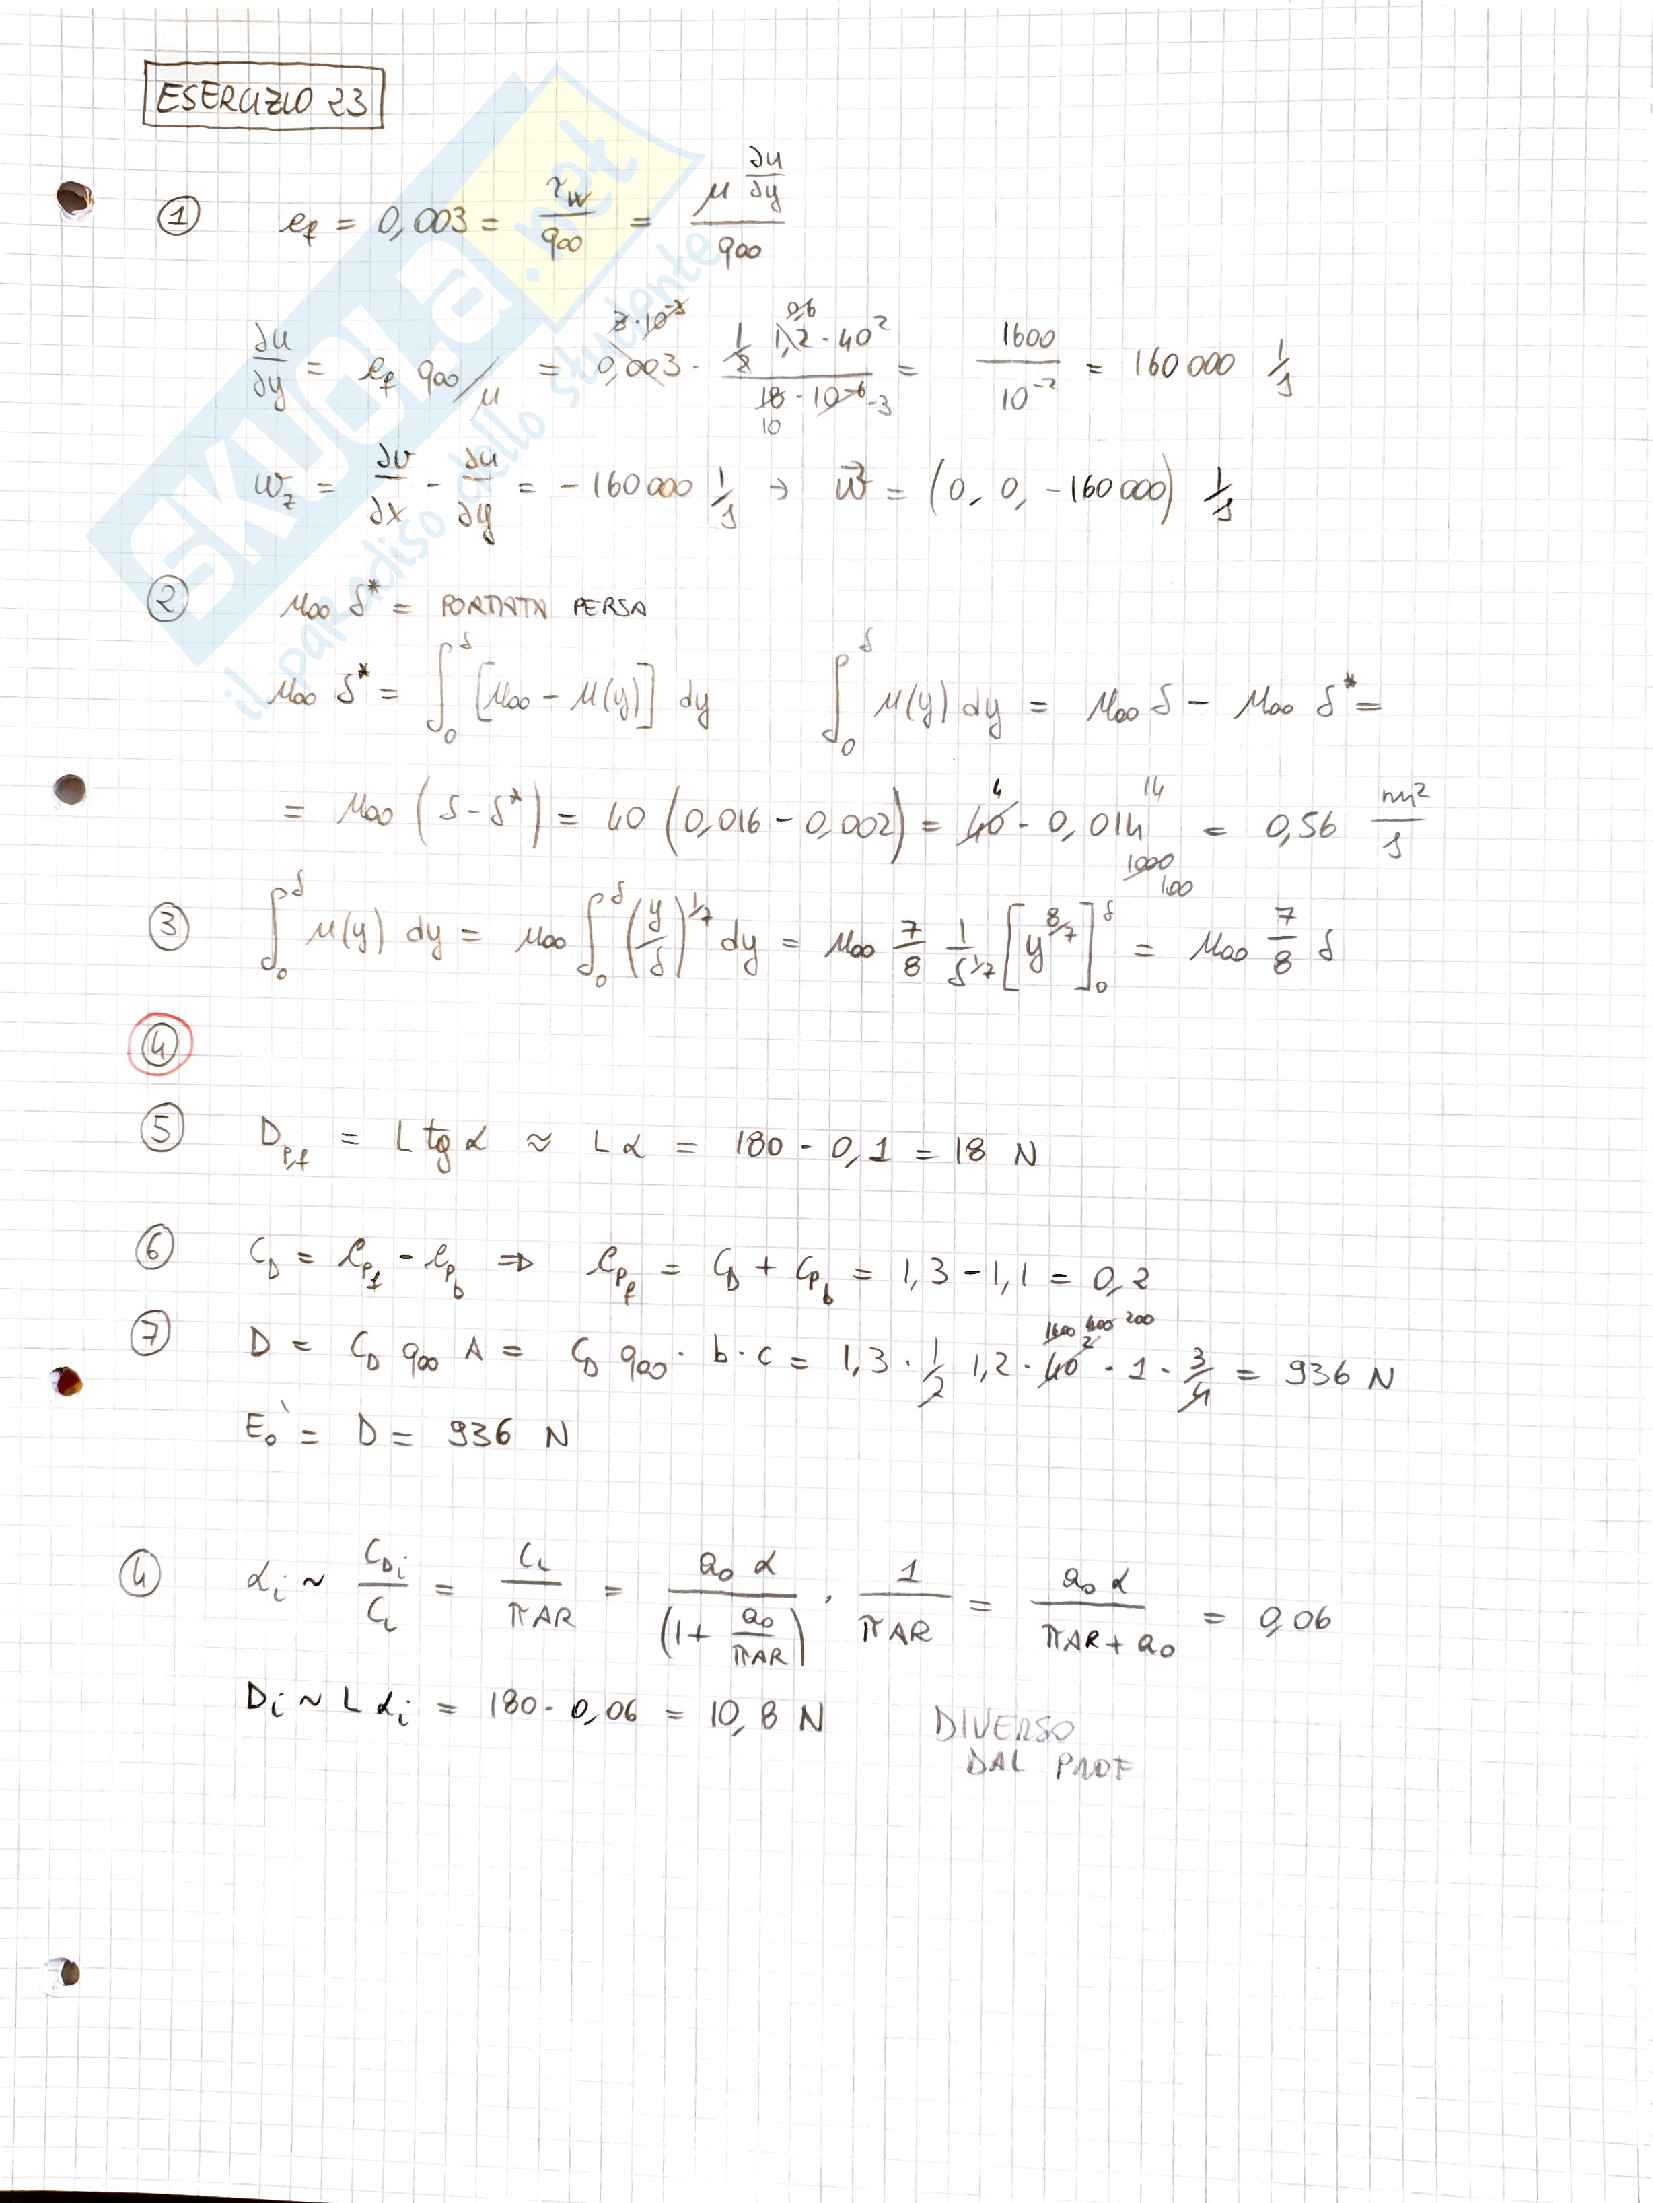 ESERCIZIO 23
① cf = 0,003 = τw / q∞ = μ ∂u/∂y / q∞
∂u/∂y = cf q∞/μ = 0,003 · 1/2 1,2 · 40² / 18 · 10⁻⁶ = 1600 / 10⁻² = 160 000 1/s
ωz = ∂v/∂x - ∂u/∂y = - 160 000 1/s → ω⃗ = (0, 0, -160 000) 1/s
② u∞ δ* = PORTATA PERSA
u∞ δ* = ∫₀^δ [u∞ - u(y)] dy ∫₀^δ u(y) dy = u∞ δ - u∞ δ* =
= u∞ (δ - δ*) = 40 (0,016 - 0,002) = 40 · 0,014 = 0,56 m²/s
③ ∫₀^δ u(y) dy = u∞ ∫₀^δ (y/δ)^1/7 dy = u∞ 7/8 1/δ^1/7 [y^8/7]₀^δ = u∞ 7/8 δ
④
⑤ Dp,f = L tg α ≈ L α = 180 · 0,1 = 18 N
⑥ CD = Cpf - Cpb ⇒ Cpf = CD + Cpb = 1,3 - 1,1 = 0,2
⑦ D = CD q∞ A = CD q∞ · b · c = 1,3 · 1/2 1,2 · 40² · 1 · 3/4 = 936 N
E₀̇ = D = 936 N
④ αi ~ CDi / CL = CL / πAR = a₀ α / (1 + a₀/πAR) · 1 / πAR = a₀ α / πAR + a₀ = 0,06
Di ~ L αi = 180 · 0,06 = 10,8 N
DIVERSO
DAL PROF
SKUOLa.net
il paradiso dello studente